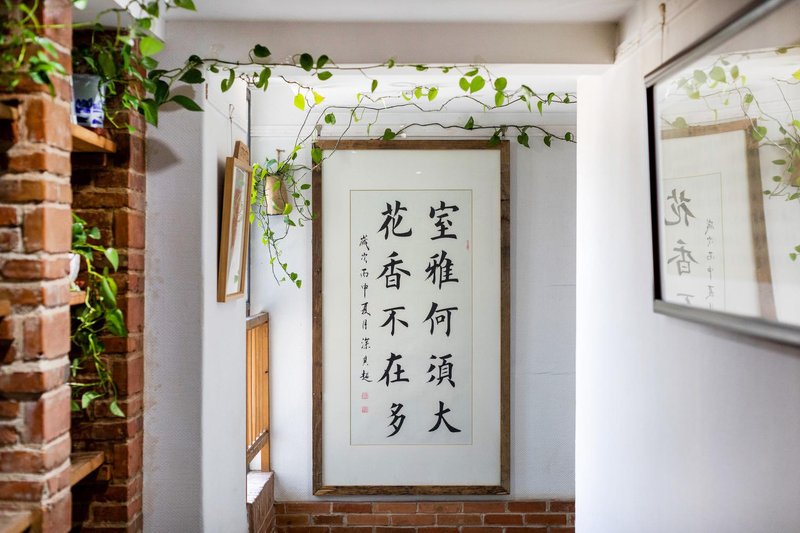 室雅何須大
花香不在多
歲次丙申夏月
花香